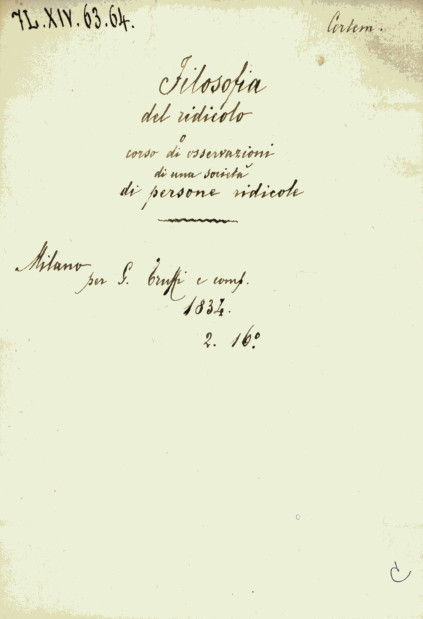 7L.XIV.63.64.
Filosofia
del ridicolo
o
corso di osservazioni
di una società
di persone ridicole
Milano
per G. Truffi e comp.
1834.
2. 16º.
C